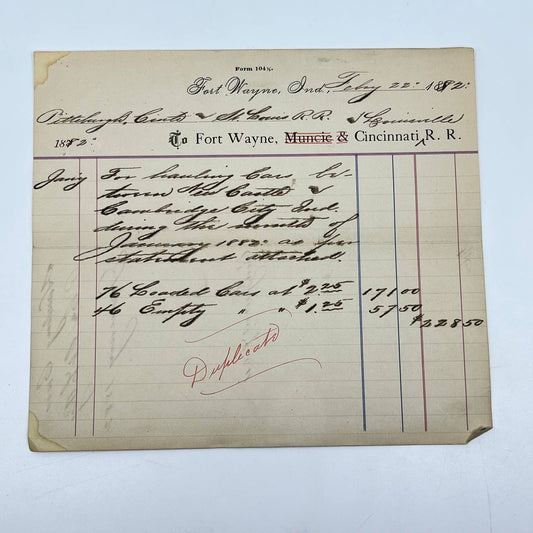 Form 104½.
Fort Wayne, Ind., Feby 22" 1882"
Pittsburgh, Cint & St Louis R.R.
& Louisville
1882" To Fort Wayne, Muncie & Cincinnati, R. R.
Jan'y For hauling Cars be-
tween New Castle &
Cambridge City Ind.
during the month of
January 1882" as per
statement attached.
76 Loaded Cars at $2.25 171 00
46 Empty " " $1.25 57 50
$228 50
Duplicate